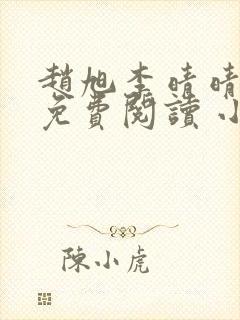 趙旭李晴晴
免費閱讀 小
陳小虎